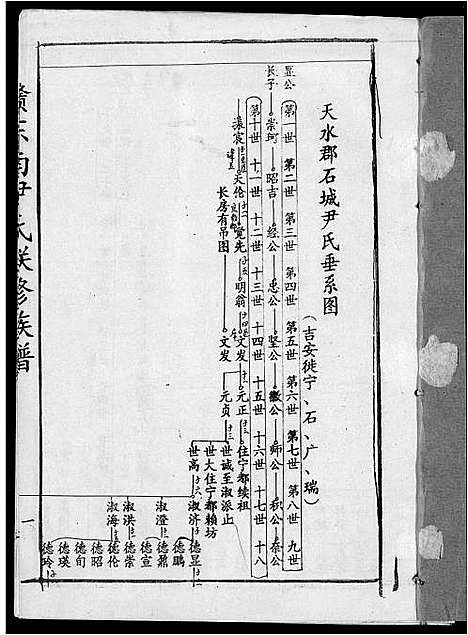 天水郡石城尹氏垂系图
（吉安徙宁、石、广、瑞）
第一世 第二世 第三世 第四世 第五世 第六世 第七世 第八世 九世
显公长子 崇珂 昭吉 经公 忠公 坚公 徽公 师公 积公 泰公
第十世 十一世 十二世 十三世 十四世 十五世 十六世 十七世 十八
滚宸 天伦 觉先 明翁 文发 元正 住宁都续祖
长房有吊图
文发 元贞 世诚至淑派止
世大住宁都赖坊
世高 淑济 德显
德鹏
淑澄 德鼎
德宣
淑洪 德崇
淑海 德伦
德昭
德旬
德瑛
德玲
赣东南尹氏联修族谱
一